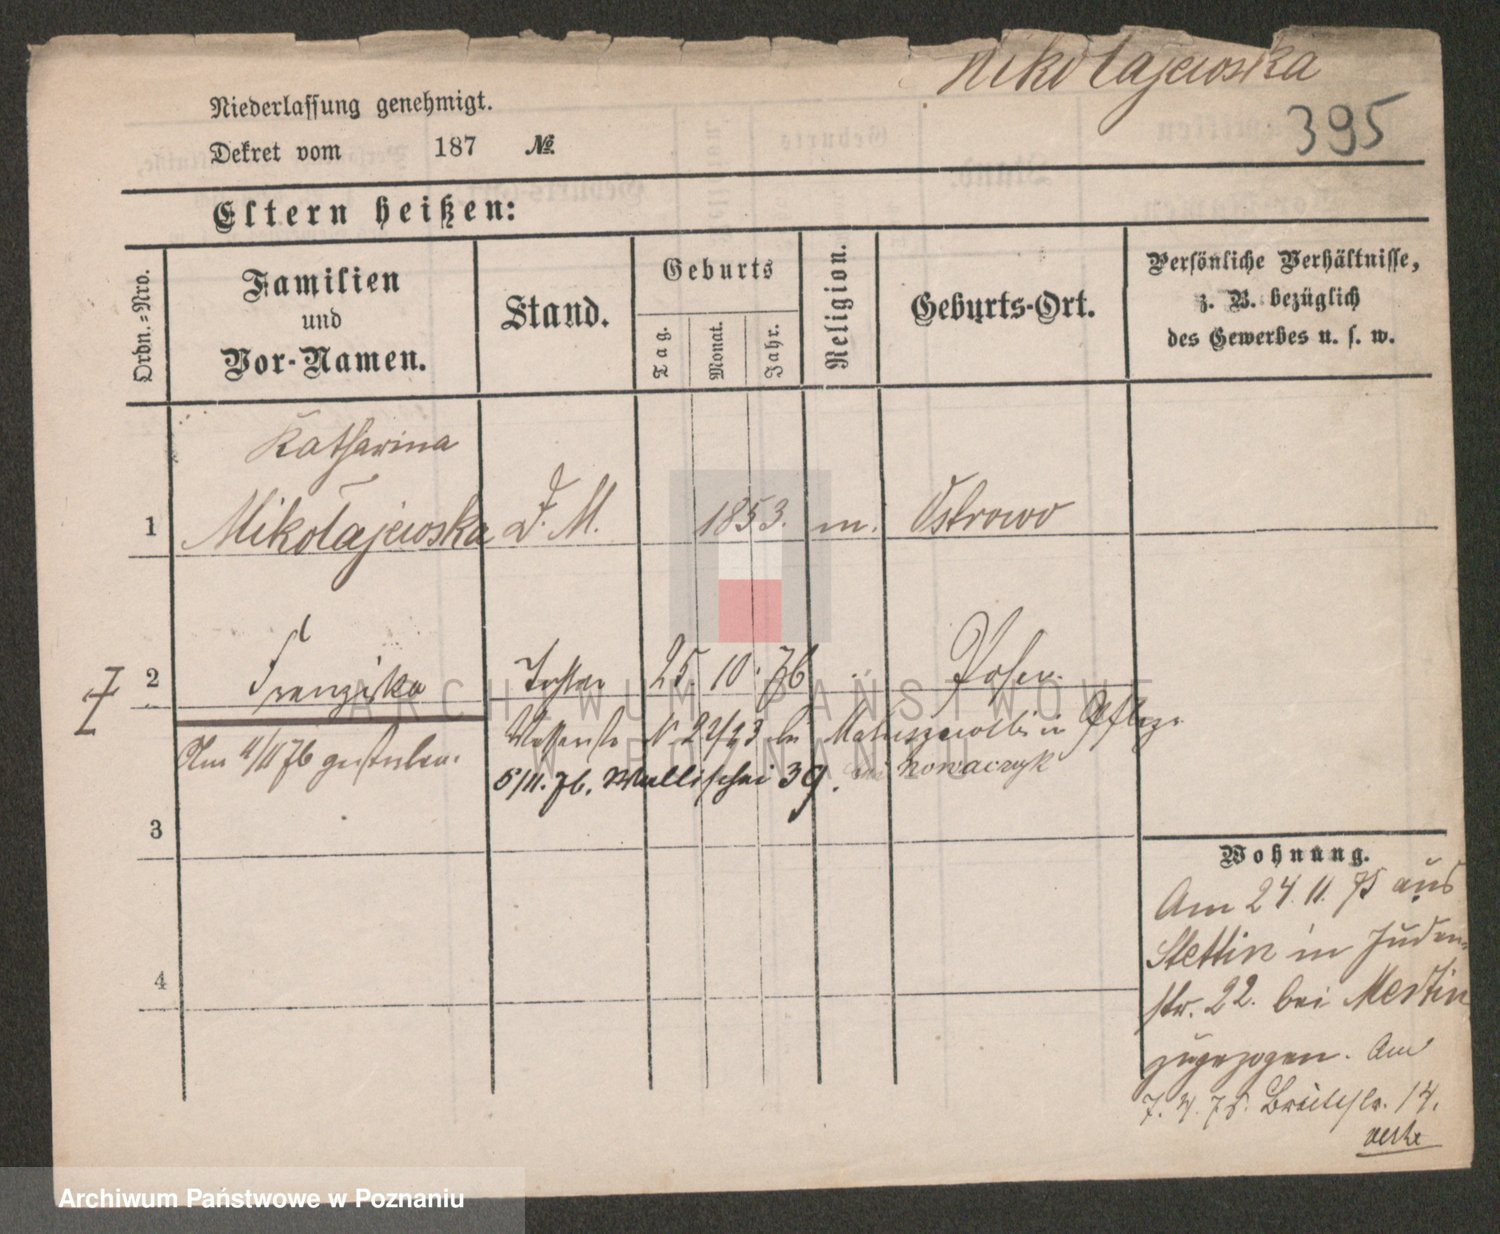 Mikołajewska
395
Niederlassung genehmigt.
Dekret vom 187 №
Eltern heißen:
Ordn.-Nro.
Familien und Vor-Namen.
Stand.
Geburts
Tag.
Monat.
Jahr.
Religion.
Geburts-Ort.
Persönliche Verhältnisse, z. B. bezüglich des Gewerbes u. s. w.
Katharina
1 Mikołajewska D. M. 1853. m. Ostrowo
2 Franziska Tochter 25 10. 76 Posen.
Am 11/11 76 gestorben. № 22/23 bei in Pflege
5/11. 76. Wallischei 39. bei Nowaczyk
3
4
Wohnung.
Am 24. 11. 75 aus
Stettin in Juden-
str. 22. bei Mertin
zugezogen. Am
14.
ARCHIWUM PAŃSTWOWE
W POZNANIU
Archiwum Państwowe w Poznaniu